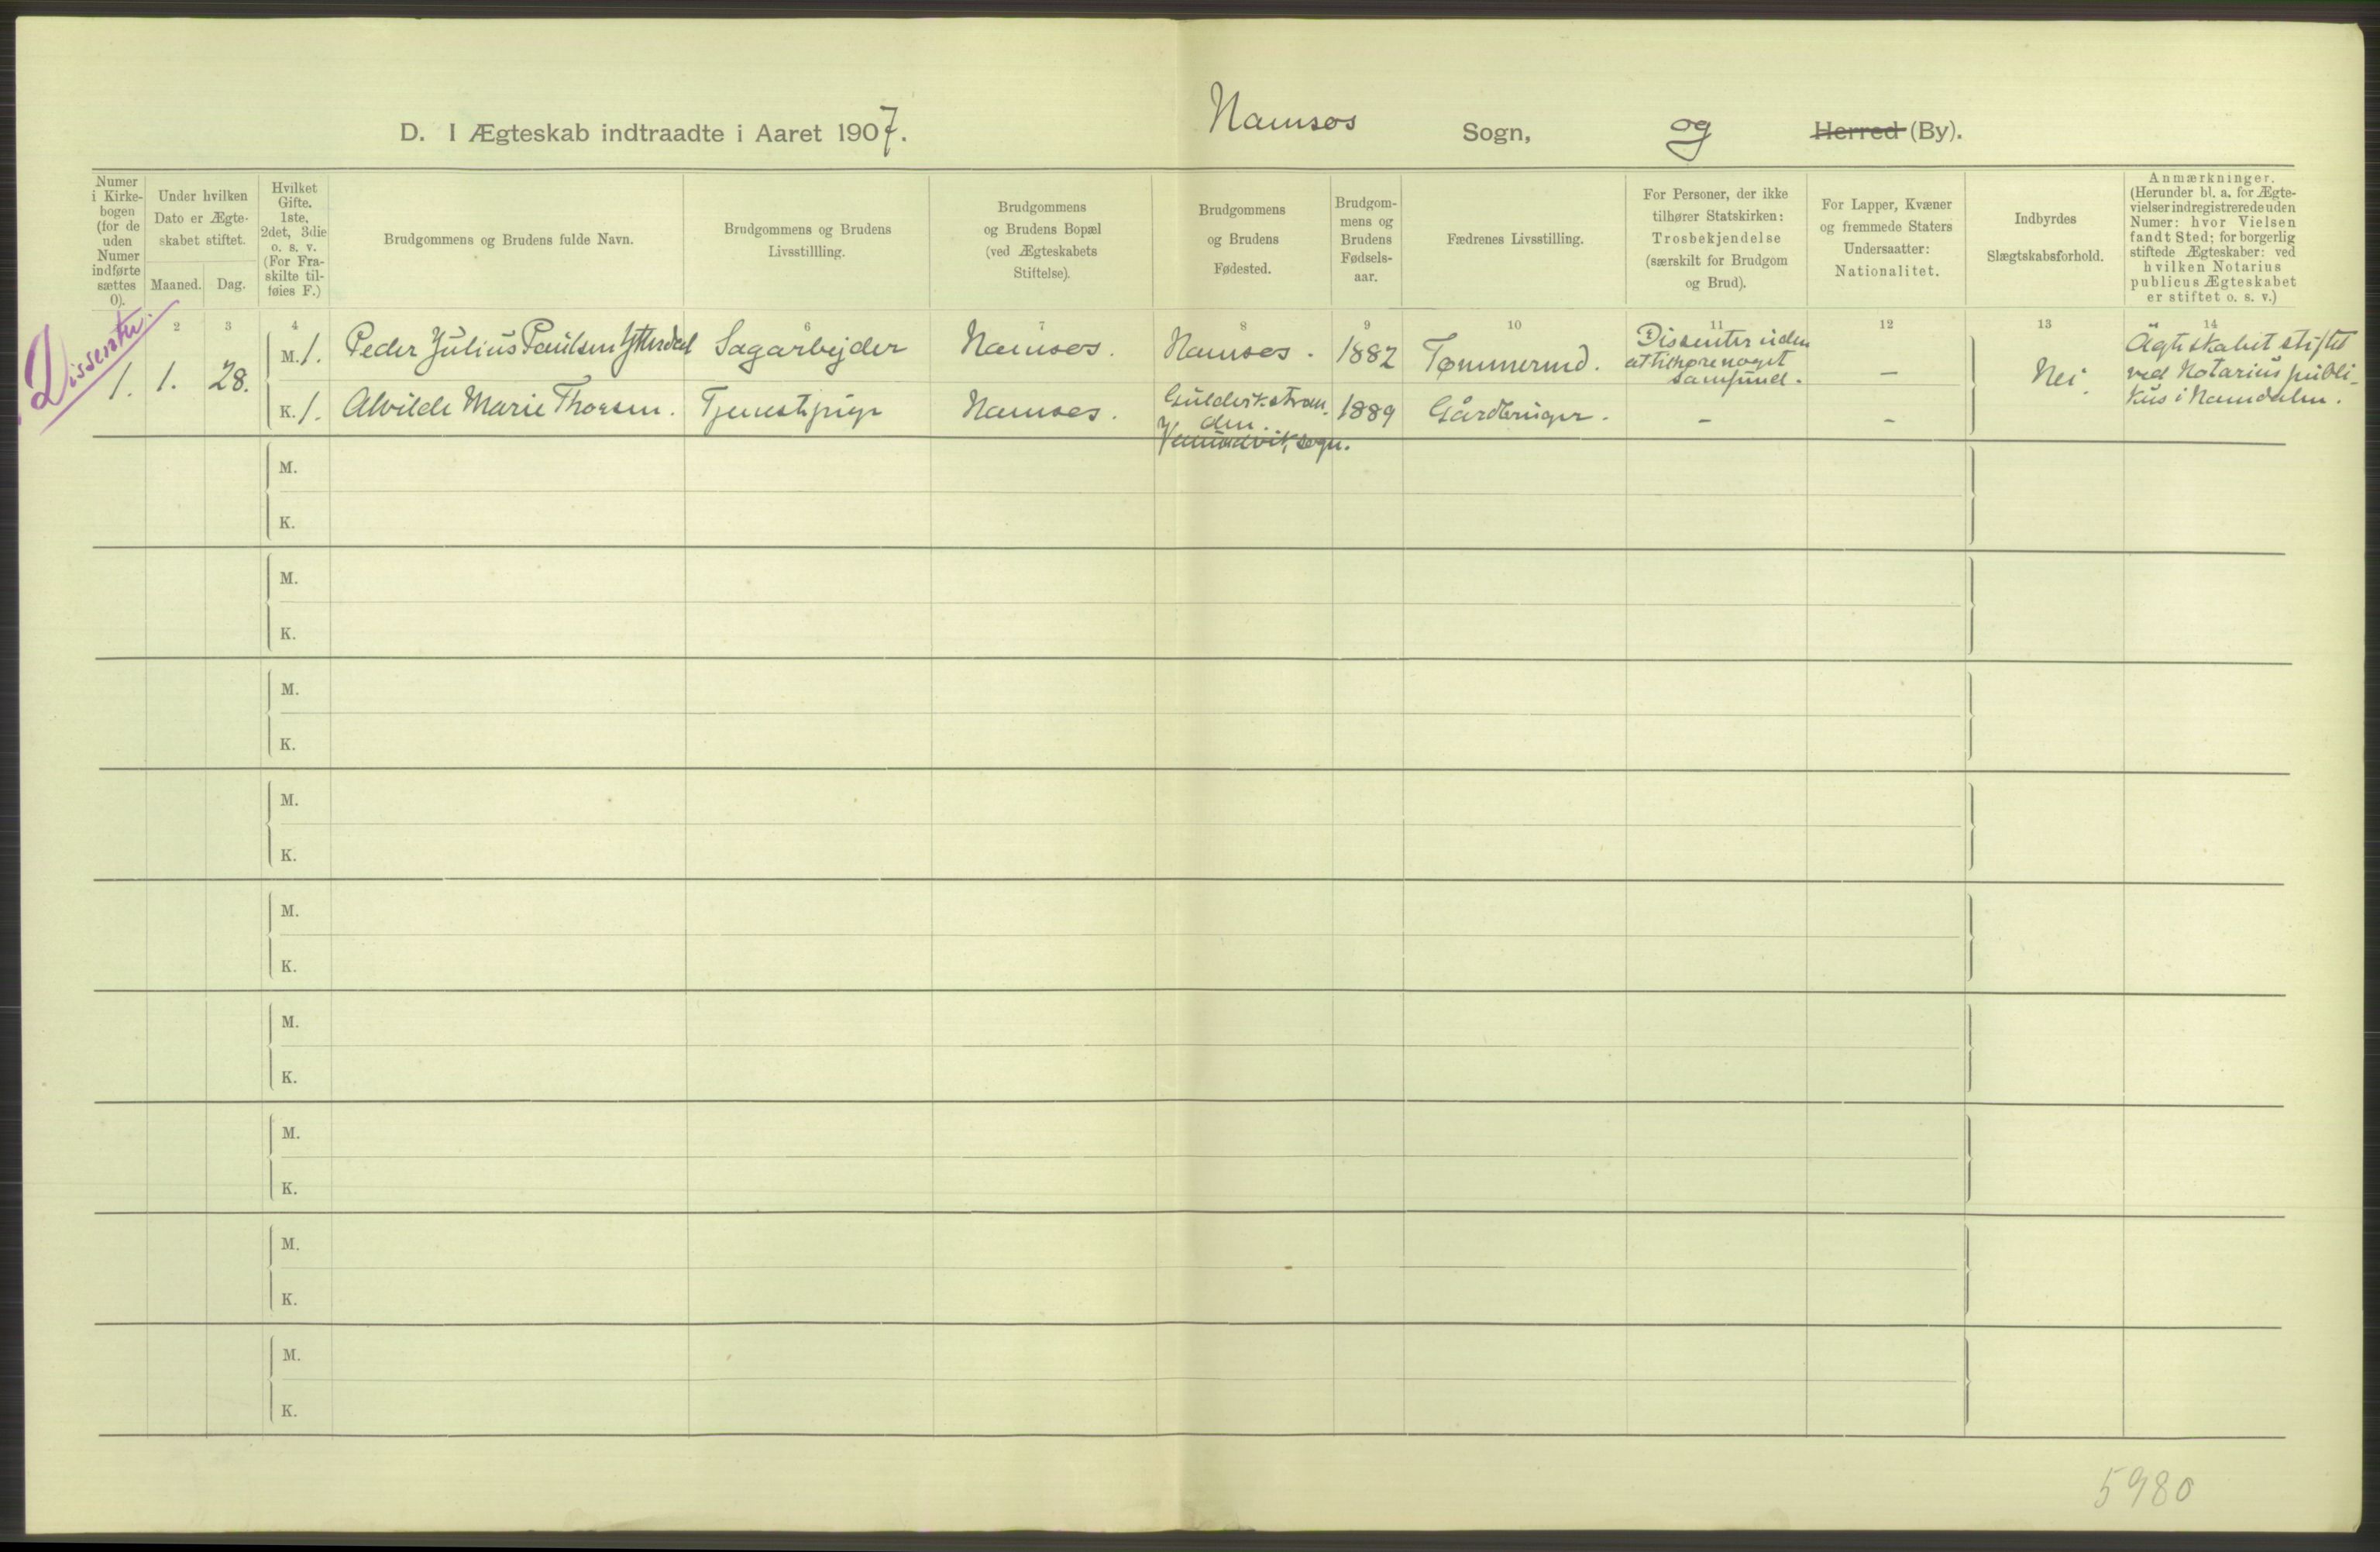 D. I Ægteskab indtraadte i Aaret 1907.
Namsos Sogn, og Herred (By).
Numer
i Kirke-
bogen
(for de
uden
Numer
indførte
sættes
0).
Under hvilken
Dato er Ægte-
skabet stiftet.
Maaned. Dag.
Hvilket
Gifte,
1ste,
2det, 3die
o. s. v.
(For Fra-
skilte til-
føies F.)
Brudgommens og Brudens fulde Navn.
Brudgommens og Brudens
Livsstillling.
Brudgommens
og Brudens Bopæl
(ved Ægteskabets
Stiftelse).
Brudgommens
og Brudens
Fødested.
Brudgom-
mens og
Brudens
Fødsels-
aar.
Fædrenes Livsstilling.
For Personer, der ikke
tilhører Statskirken:
Trosbekjendelse
(særskilt for Brudgom
og Brud).
For Lapper, Kvæner
og fremmede Staters
Undersaatter:
Nationalitet.
Indbyrdes
Slægtskabsforhold.
Anmærkninger.
(Herunder bl. a. for Ægte-
vielser indregistrerede uden
Numer: hvor Vielsen
fandt Sted; for borgerlig
stiftede Ægteskaber: ved
hvilken Notarius
publicus Ægteskabet
er stiftet o. s. v.)
2 3 4 6 7 8 9 10 11 12 13 14
Dissenter.
1. 1. 28.
M. 1. Peder Julius Paulsen Ytterdal Sagarbejder Namsos. Namsos. 1882 Tømmermd.
Dissenter uden
at tilhøre noget
samfund.
–
K. 1. Alvilde Marie Thorsen. Tjenestepige Namsos.
Guldvikstran-
den.
Vemundvik sogn.
1889 Gårdbruger. – –
Nei.
Ægteskabet stiftet
ved Notarius publi-
kus i Namdalen.
M.
K.
M.
K.
M.
K.
M.
K.
M.
K.
M.
K.
M.
K.
M.
K.
M.
K.
5980